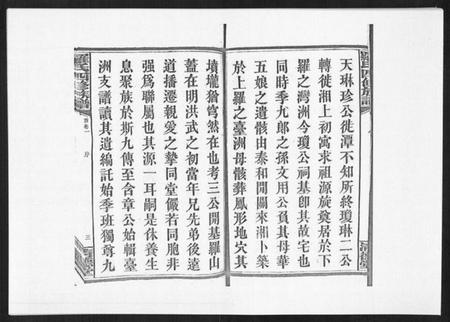 天琳珍公徙潭不知所終瓊琳二公
轉徙湘上初寓求祖源旋奠居於下
羅之灣洲今瓊公祠基卽其故宅也
同時季九郎之孫文用公負其母華
五娘之遺骸由泰和開關來湘卜築
於上羅之臺洲母骸葬鳳形地穴其
墳壠猶穹然在也考三公開基羅山
蓋在明洪武之初當年兄先弟後遠
道播遷親愛之摯同堂儼若同胞非
強爲聯屬也其源一耳嗣是休養生
息聚族於斯九傳至含章公始輯臺
洲支譜讀其遺編託始季班獨尊九
序
三